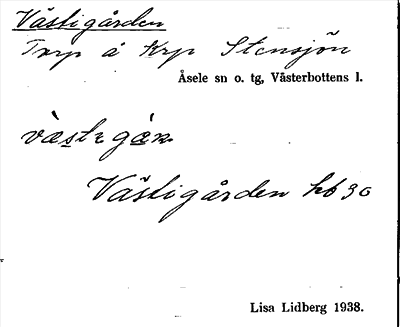 Västigården
Torp å Krp Stensjön
Åsele sn o. tg, Västerbottens l.
Västigården hb 30
Lisa Lidberg 1938.